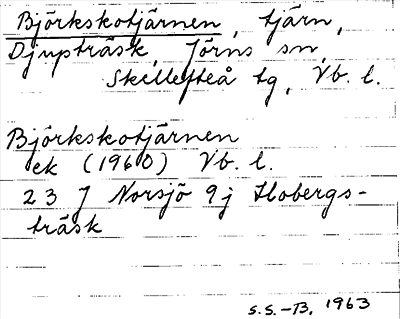 Björkskotjärnen, tjärn,
Djupträsk, Jörns sn,
Skellefteå tg, Vb. l.
Björkskotjärnen
ek (1960) Vb. l.
23 J Norsjö 9j Storbergs-
träsk
S.S.-B. 1963